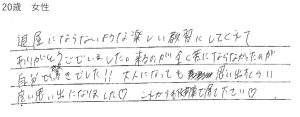 20歳 女性
退屈にならないような楽しい教習にしてくれて
ありがとうございました。来るのが全く苦にならなかったのが
自分で驚きでした!! 大人になっても 思い出そうな
良い思い出になりました♡ これからもお体 下さい♡